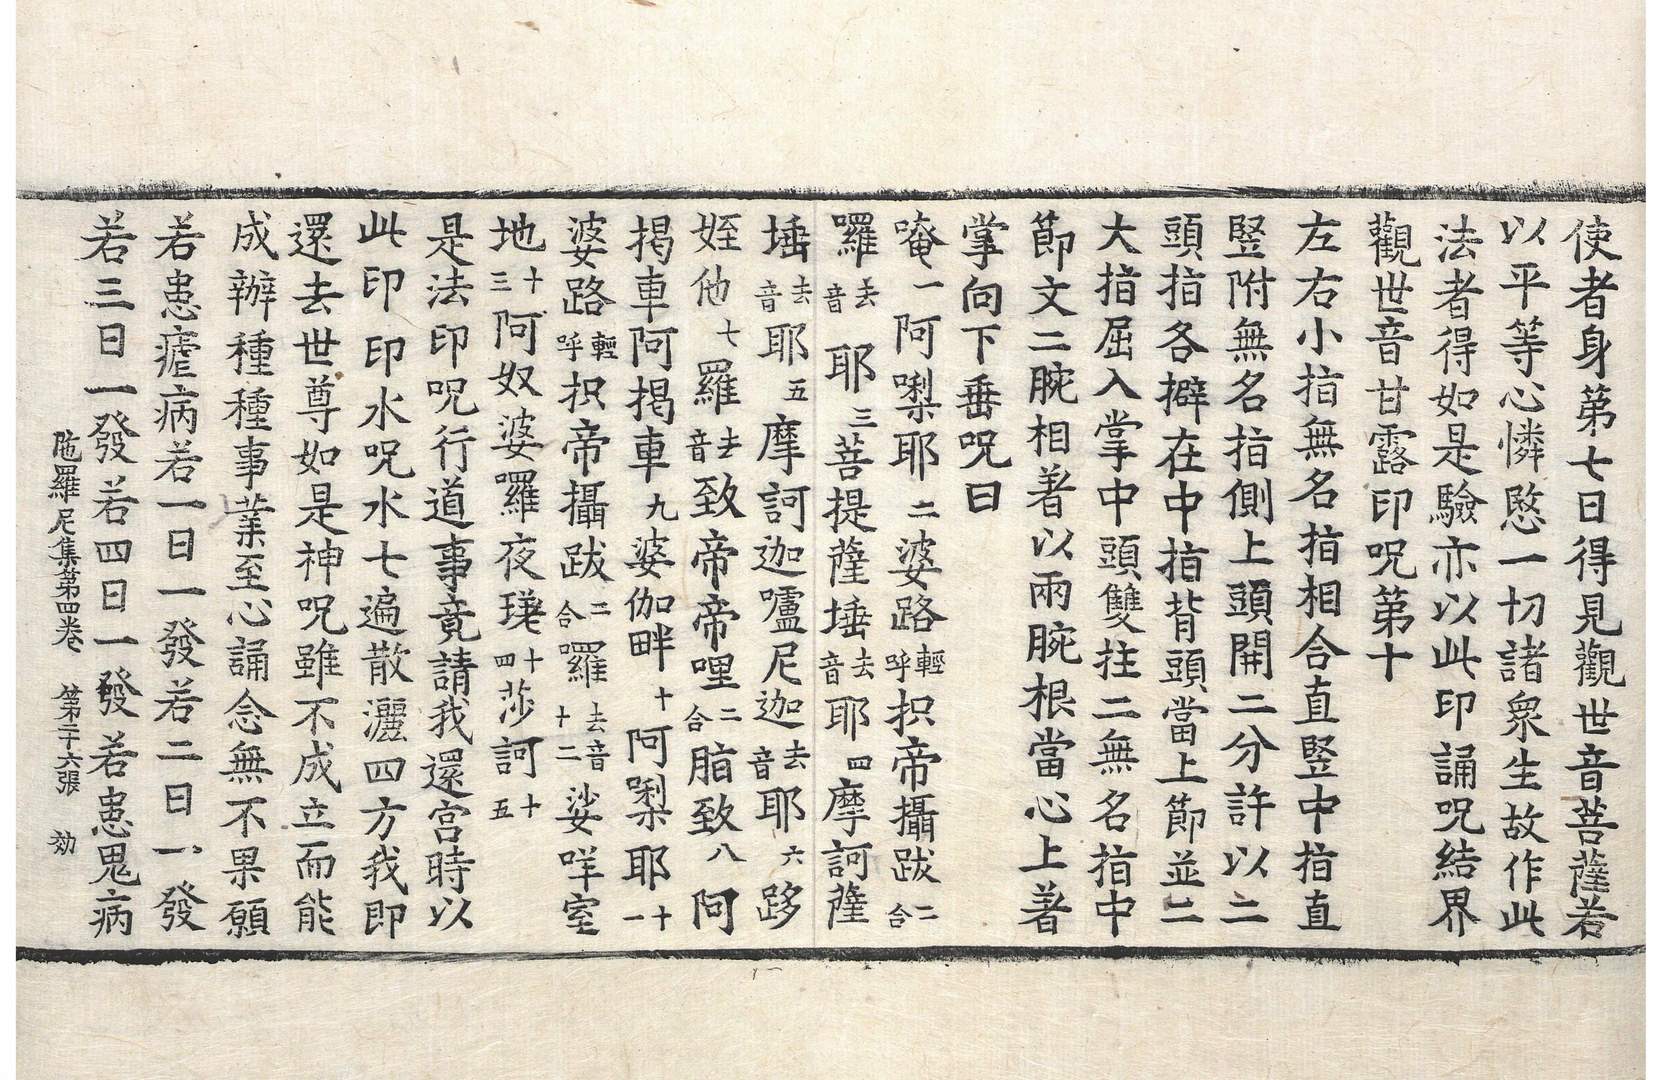 使者身第七日得見觀世音菩薩若
以平等心憐愍一切諸衆生故作此
法者得如是驗亦以此印誦呪結界
觀世音甘露印呪第十
左右小指無名指相合直竪中指直
竪附無名指側上頭開二分許以二
頭指各擗在中指背頭當上節並二
大指屈入掌中頭雙拄二無名指中
節文二腕相著以兩腕根當心上著
掌向下垂呪曰
唵一阿㗚耶二婆路輕呼抧帝攝跋二合
囉去音耶三菩提薩埵去音耶四摩訶薩
埵去音耶五摩訶迦嚧尼迦去音耶六跢
姪他七羅去音致帝帝哩二合脂致八阿
揭車阿揭車九婆伽畔十阿㗚耶十一
婆路輕呼抧帝攝跋二合囉去音十二娑咩室
地十三阿奴婆囉夜瑳十四莎訶十五
是法印呪行道事竟請我還宮時以
此印印水呪水七遍散灑四方我即
還去世尊如是神呪雖不成立而能
成辦種種事業至心誦念無不果願
若患瘧病若一日一發若二日一發
若三日一發若四日一發若患鬼病
陁羅尼集第四卷 第二十六張 効